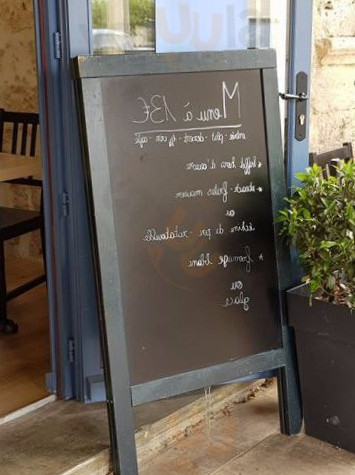 Menu à 13€
entrée - plat - dessert - 1/4 vin café
* buffet hors d'œuvre
* steack - frites maison
ou
échine de porc - ratatouille
* fromage blanc
ou
glace